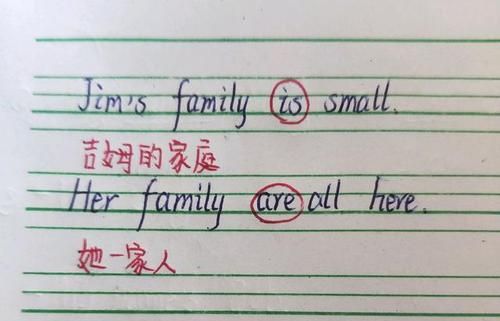 Jim's family is small.
吉姆的家庭
Her family are all here.
她一家人